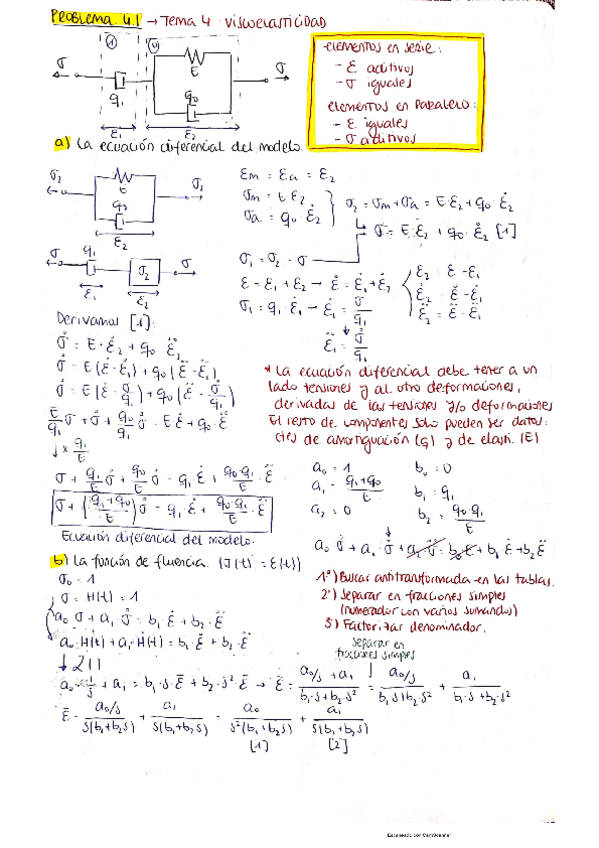 PROBLEMA 4.1 → TEMA 4 VISCOELASTICIDAD
① ⓥ
σ E σ
q₁ q₀
ε₁ ε₂
elementos en serie:
- ε aditivos
- σ iguales
elementos en paralelo:
- ε iguales
- σ aditivos
a) La ecuación diferencial del modelo.
σ₂ E q₀ ε₂
εm = εa = ε₂
σm = E ε₂
σa = q₀ · ε̇₂
σ₂ = σm + σa = E·ε₂ + q₀·ε̇₂
σ = E·ε₂ + q₀·ε̇₂ [1]
σ q₁ σ₂ σ
ε₁ ε₂
σ₁ = σ₂ = σ
ε = ε₁ + ε₂ → ε̇ = ε̇₁ + ε̇₂
σ₁ = q₁·ε̇₁ → ε̇₁ = σ/q₁
↓
ε̈₁ = σ̇/q₁
ε₂ = ε - ε₁
ε̇₂ = ε̇ - ε̇₁
ε̈₂ = ε̈ - ε̈₁
Derivamos [1]:
σ̇ = E·ε̇₂ + q₀ ε̈₂
σ̇ = E(ε̇ - ε̇₁) + q₀(ε̈ - ε̈₁)
σ̇ = E(ε̇ - σ/q₁) + q₀(ε̈ - σ̇/q₁)
E/q₁ σ + σ̇ + q₀/q₁ σ̇ = E ε̇ + q₀·ε̈
↓ x q₁/E
σ + q₁/E σ̇ + q₀/E σ̇ = q₁·ε̇ + q₀·q₁/E · ε̈
σ + (q₁+q₀/E) σ̇ = q₁·ε̇ + q₀·q₁/E · ε̈
Ecuación diferencial del modelo.
* La ecuación diferencial debe tener a un
lado tensiones y al otro deformaciones,
derivadas de las tensiones y/o deformaciones
El resto de componentes solo pueden ser datos:
ctes de amortiguación (q) y de elasti. (E)
a₀ = 1 b₀ = 0
a₁ = q₁+q₀/E b₁ = q₁
a₂ = 0 b₂ = q₀·q₁/E
a₀ σ + a₁·σ̇ + a₂ σ̈ = b₀ε + b₁ε̇ + b₂ε̈
b) La función de fluencia. (J(t) = ε(t))
σ₀ = 1
σ = H(t) = 1
a₀ σ + a₁ σ̇ = b₁·ε̇ + b₂·ε̈
a₀·H(t) + a₁·Ḣ(t) = b₁·ε̇ + b₂·ε̈
1º) Buscar antitransformada en las tablas.
2º) Separar en fracciones simples
(numerador con varios sumandos)
3º) Factorizar denominador.
separar en
fracciones simples
a₀·1/s + a₁ = b₁·s·ε̄ + b₂·s²·ε̄ → ε̄ = a₀/s + a₁ / b₁·s + b₂·s² = a₀/s / b₁s + b₂s² + a₁ / b₁·s + b₂s²
ε̄ = a₀/s / s(b₁+b₂s) + a₁ / s(b₁+b₂s) = a₀ / s²(b₁+b₂s) + a₁ / s(b₁+b₂s)
[1] [2]
Escaneado con CamScanner